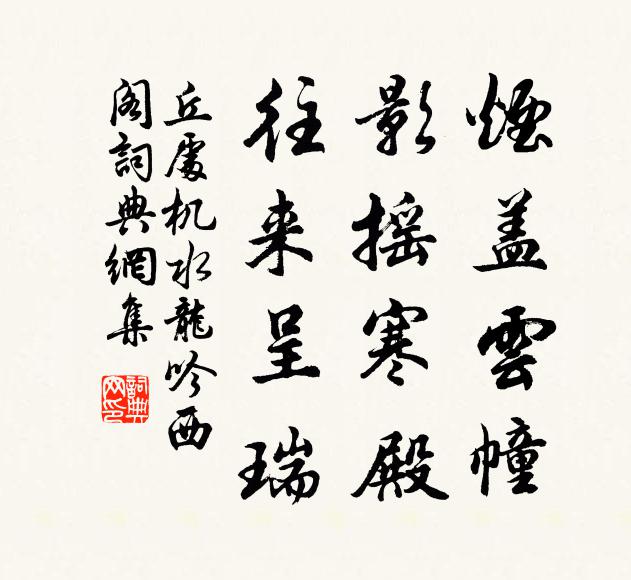 煙盖雲幢
影摇寒殿
往来呈瑞
丘處机水龍吟西
阁詞典網集
詞典网印